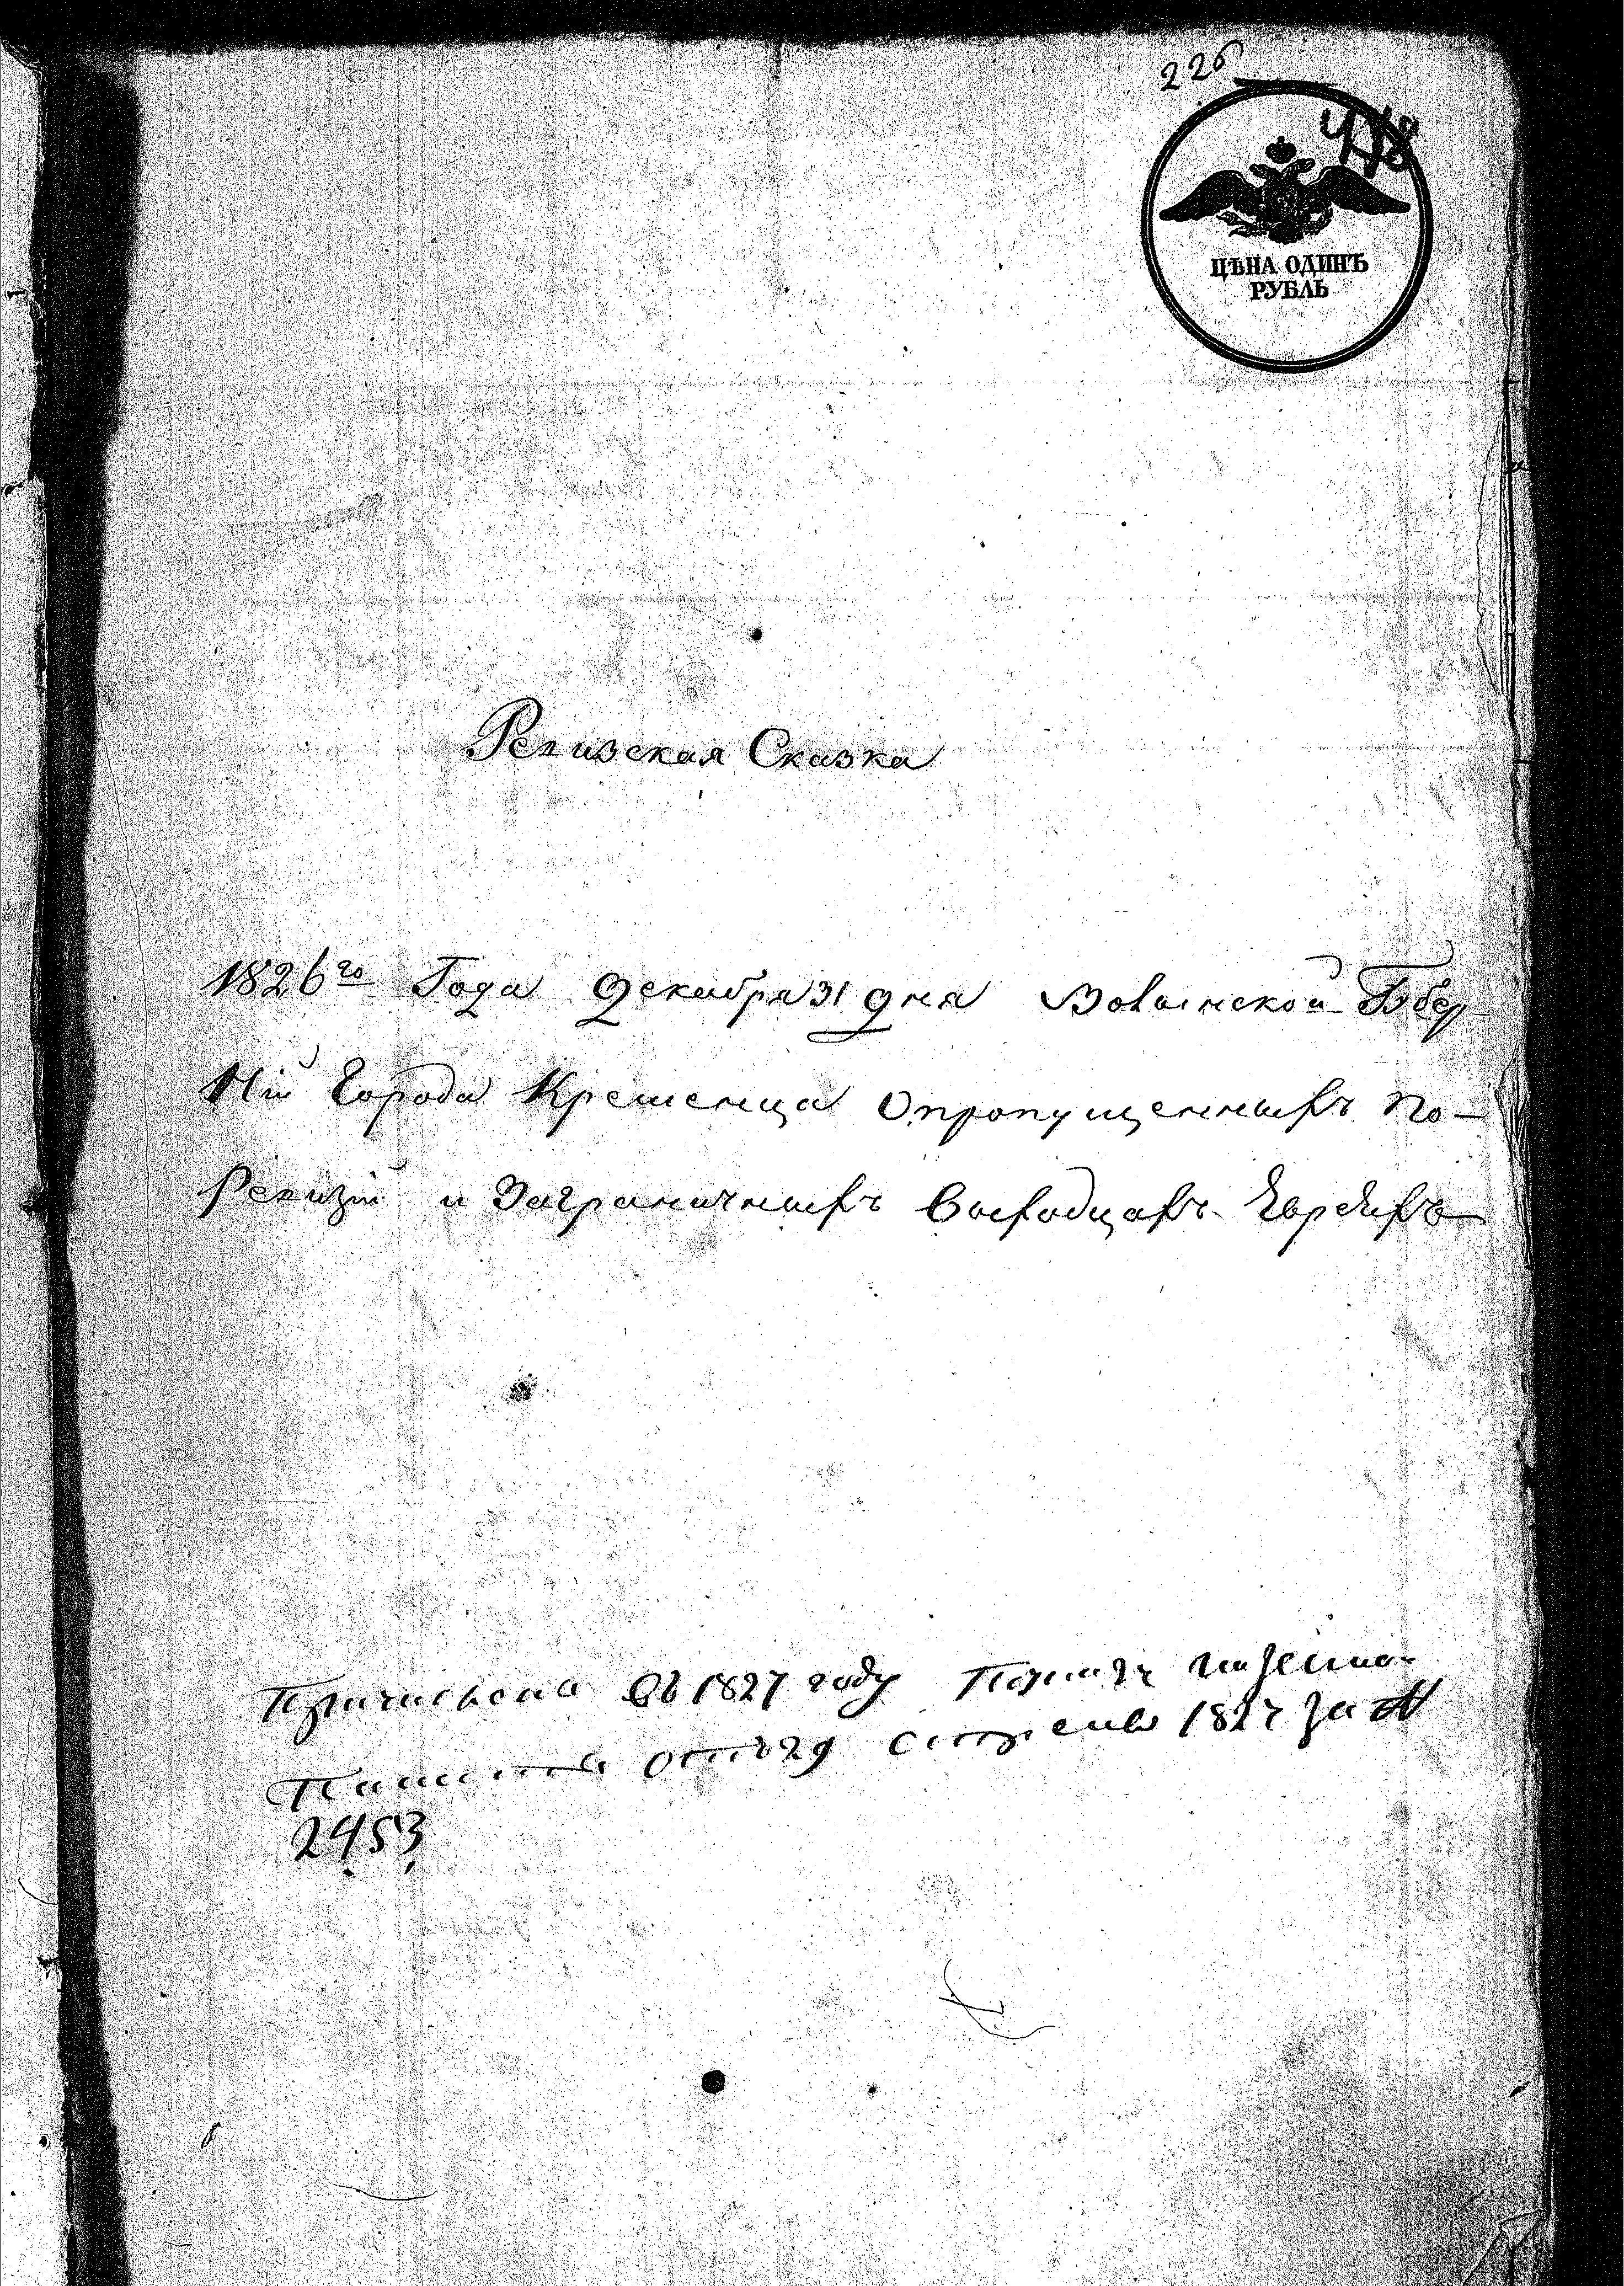 226
418
ЦѢНА ОДИНЪ
РУБЛЬ
Ревизская Сказка
1826го Года Декабря 31 дня Волынской Губер
Ній Города Кременца О пропущенныхъ по-
Ревизій и Заграничныхъ выходцахъ Евреяхъ
Причислена въ 1827 году
отъ 29 1827 за №
2453